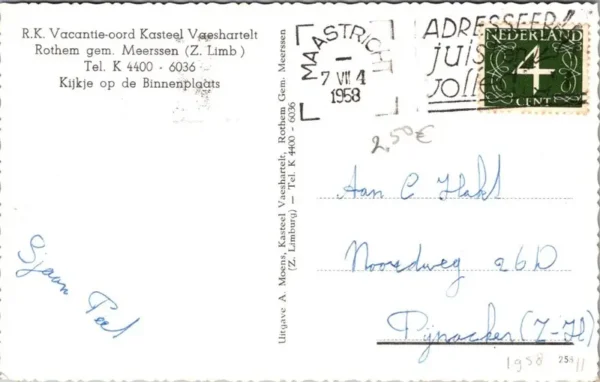 R.K. Vacantie-oord Kasteel Vaeshartelt
Rothem gem. Meerssen (Z. Limb)
Tel. K 4400 - 6036
Kijkje op de Binnenplaats
MAASTRICHT
7 VII 4
1958
ADRESSEER
juist en
volle
NEDERLAND
4
CENT
2,50€
Uitgave A. Moens, Kasteel Vaeshartelt, Rothem Gem. Meerssen
(Z. Limburg) — Tel. K 4400 - 6036
Aan C
Noordweg 26D
Pijnacker (Z-Hl)
Sjaan
1958